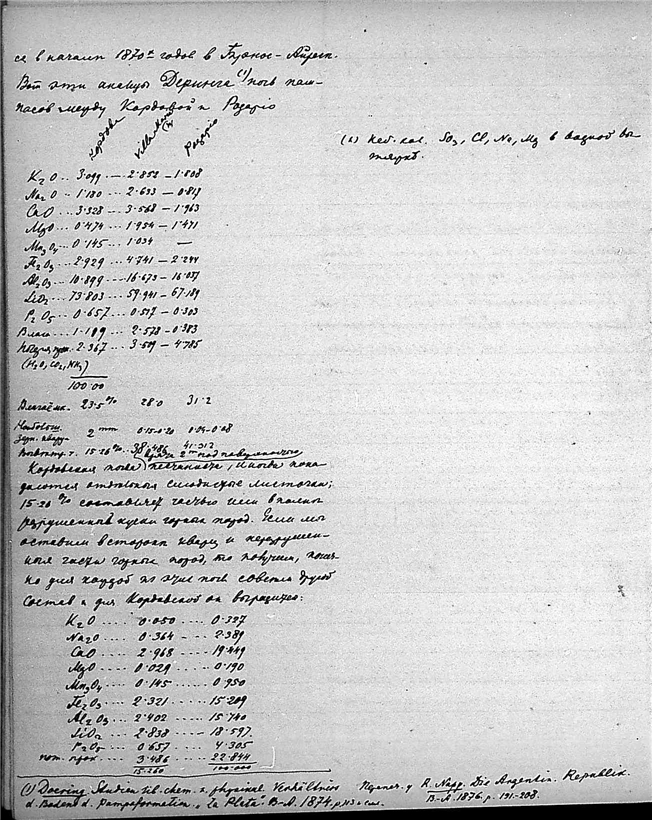 ся въ началѣ 1870х годов в Буэнос-Айрес.
Вот эти анализы Деринга (1) почв пам-
пасов между Кордовой и Розаріо
Кордова Villa Maria Розаріо
K2O .. 3.099 — 2.852 — 1.808
Na2O .. 1.180 .. 2.633 — 0.818
CaO .. 3.328 — 3.568 — 1.963
MgO .. 0.474 .. 1.954 — 1.471
Mn3O4 .. 0.145 .. 1.034 —
Fe2O3 .. 2.929 .. 4.741 — 2.244
Al2O3 .. 10.899 .. 16.673 — 16.037
SiO2 .. 73.803 .. 59.941 — 67.189
P2O5 .. 0.657 .. 0.512 — 0.303
Влаги .. 1.109 .. 2.578 — 0.383
2.367 .. 3.519 — 4.785
(H2O, CO2, NH3)
100.00
Влагоёмк. 23.5% 28.0 31.2
Наибольш.
зерн. кварц. 2 mm 0.15-0.20 0.04-0.08
15.26% 38.486 41.312
Кордовская почва песчаниста, иногда попа-
даются отдельные слюдистые листочки;
15.26% составляет частью или вполне
разрушенные куски горных пород. Если мы
оставим в стороне кварц и неразрушен-
ные части горных пород, то получим, коне-
но для каждой из этих почв совсем другой
состав и для Кордовской он выразится:
K2O ..... 0.050 ..... 0.327
Na2O .... 0.364 ..... 2.389
CaO ..... 2.968 ..... 19.449
MgO ..... 0.029 ..... 0.190
Mn3O4 .... 0.145 ..... 0.950
Fe2O3 .... 2.321 ..... 15.209
Al2O3 ... 2.402 ..... 15.740
SiO2 .... 2.838 ..... 18.597
P2O5 .... 0.657 ..... 4.305
пот. прок. ... 3.486 ..... 22.844
15.260 100.000
(1) Doering Studien üb. chem. u. physikal. Verhältniss
d. Bodens d. Pampaformation „La Plata". B-A. 1874. p.
R. Napp. Die Argentin. Republik.
B-A. 1876. p. 191-208.
(2) SO3, Cl, Na, Mg в водной вы-
тяжкѣ.